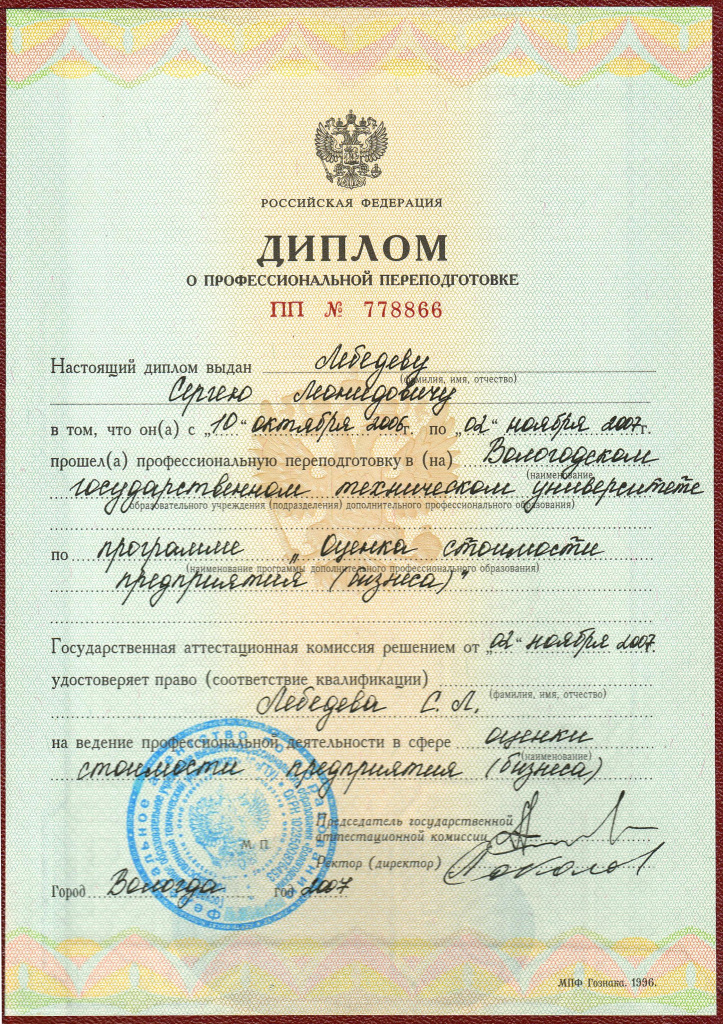 РОССИЙСКАЯ ФЕДЕРАЦИЯ
ДИПЛОМ
О ПРОФЕССИОНАЛЬНОЙ ПЕРЕПОДГОТОВКЕ
ПП № 778866
Настоящий диплом выдан Лебедеву
(фамилия, имя, отчество)
Сергею Леонидовичу
в том, что он(а) с „10“ октября 2006г. по „02“ ноября 2007г.
прошел(а) профессиональную переподготовку в (на) Вологодском
(наименование
государственном техническом университете
образовательного учреждения (подразделения) дополнительного профессионального образования)
по программе „Оценка стоимости
(наименование программы дополнительного профессионального образования)
предприятия (бизнеса)"
Государственная аттестационная комиссия решением от „02“ ноября 2007.
удостоверяет право (соответствие квалификации)
(фамилия, имя, отчество)
Лебедева С. Л.
на ведение профессиональной деятельности в сфере оценки
(наименование)
стоимости предприятия (бизнеса)
Председатель государственной
аттестационной комиссии
М. П.
Ректор (директор)
Город Вологда год 2007
МПФ Гознака. 1996.